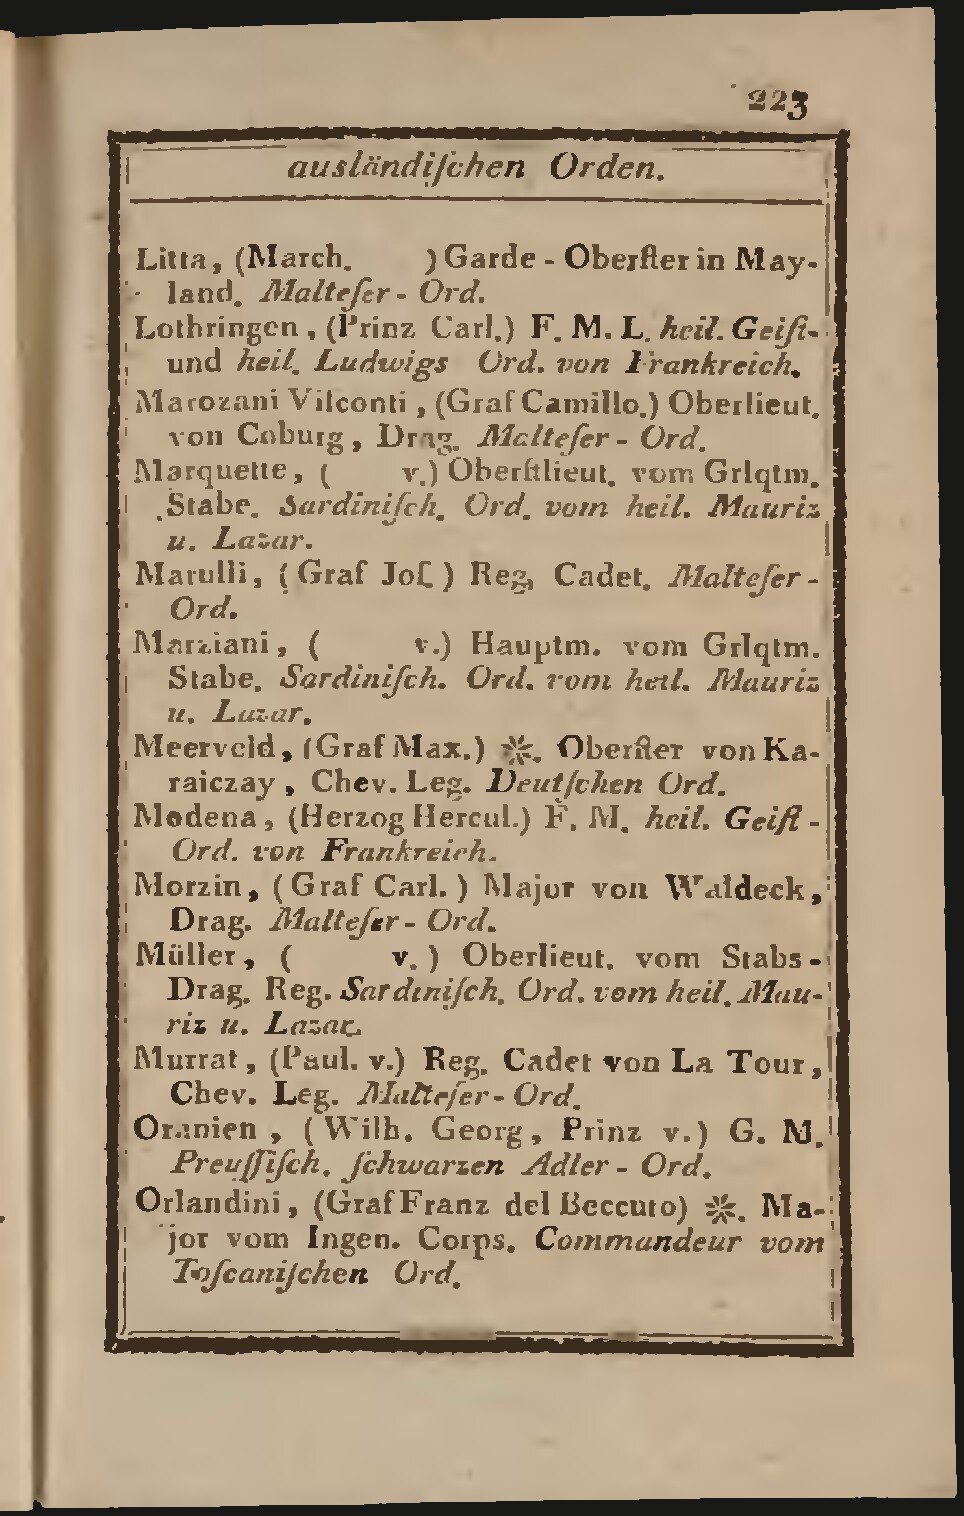 223
ausländiſchen Orden.
Litta, (March. ) Garde - Oberſter in May-
land. Malteſer - Ord.
Lothringen, (Prinz Carl.) F. M. L. heil. Geiſt-
und heil. Ludwigs Ord. von Frankreich.
Marozani Viſconti, (Graf Camillo.) Oberlieut.
von Coburg, Drag. Malteſer - Ord.
Marquette, ( v.) Oberſtlieut. vom Grlqtm.
Stabe. Sardiniſch. Ord. vom heil. Mauriz
u. Lazar.
Marulli, (Graf Joſ.) Reg. Cadet. Malteſer -
Ord.
Marziani, ( v.) Hauptm. vom Grlqtm.
Stabe. Sardiniſch. Ord. vom heil. Mauriz
u. Lazar.
Meerveld, (Graf Max.) ※. Oberſter von Ka-
raiczay, Chev. Leg. Deutſchen Ord.
Modena, (Herzog Hercul.) F. M. heil. Geiſt -
Ord. von Frankreich.
Morzin, (Graf Carl.) Major von Waldeck,
Drag. Malteſer - Ord.
Müller, ( v.) Oberlieut. vom Stabs -
Drag. Reg. Sardiniſch. Ord. vom heil. Mau-
riz u. Lazar.
Murrat, (Paul. v.) Reg. Cadet von La Tour,
Chev. Leg. Malteſer - Ord.
Oranien, (Wilh. Georg, Prinz v.) G. M.
Preuſſiſch. ſchwarzen Adler - Ord.
Orlandini, (Graf Franz del Beccuto) ※. Ma-
jor vom Ingen. Corps. Commandeur vom
Toſcaniſchen Ord.